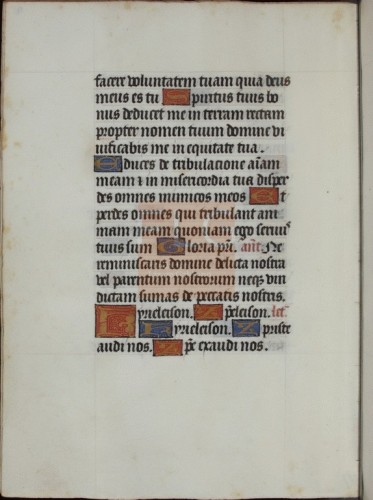 facere voluntatem tuam quia deus
meus es tu Spiritus tuus bo
nus deducet me in terram rectam
propter nomen tuum domine vi
vificabis me in equitate tua.
Educes de tribulacione aīam
meam ⁊ in misericordia tua disper
des omnes inimicos meos Et
perdes omnes qui tribulant ani
mam meam quoniam ego servus
tuus sum Gloria pr̄i. añt. Ne
reminiscaris domine delicta nostra
vel parentum nostrorum neqꝫ vin
dictam sumas de peccatis nostris.
Kyrieleison. Xp̄eleison. let̄
Kyrieleison. Xpriste
audi nos. Xp̄e exaudi nos.